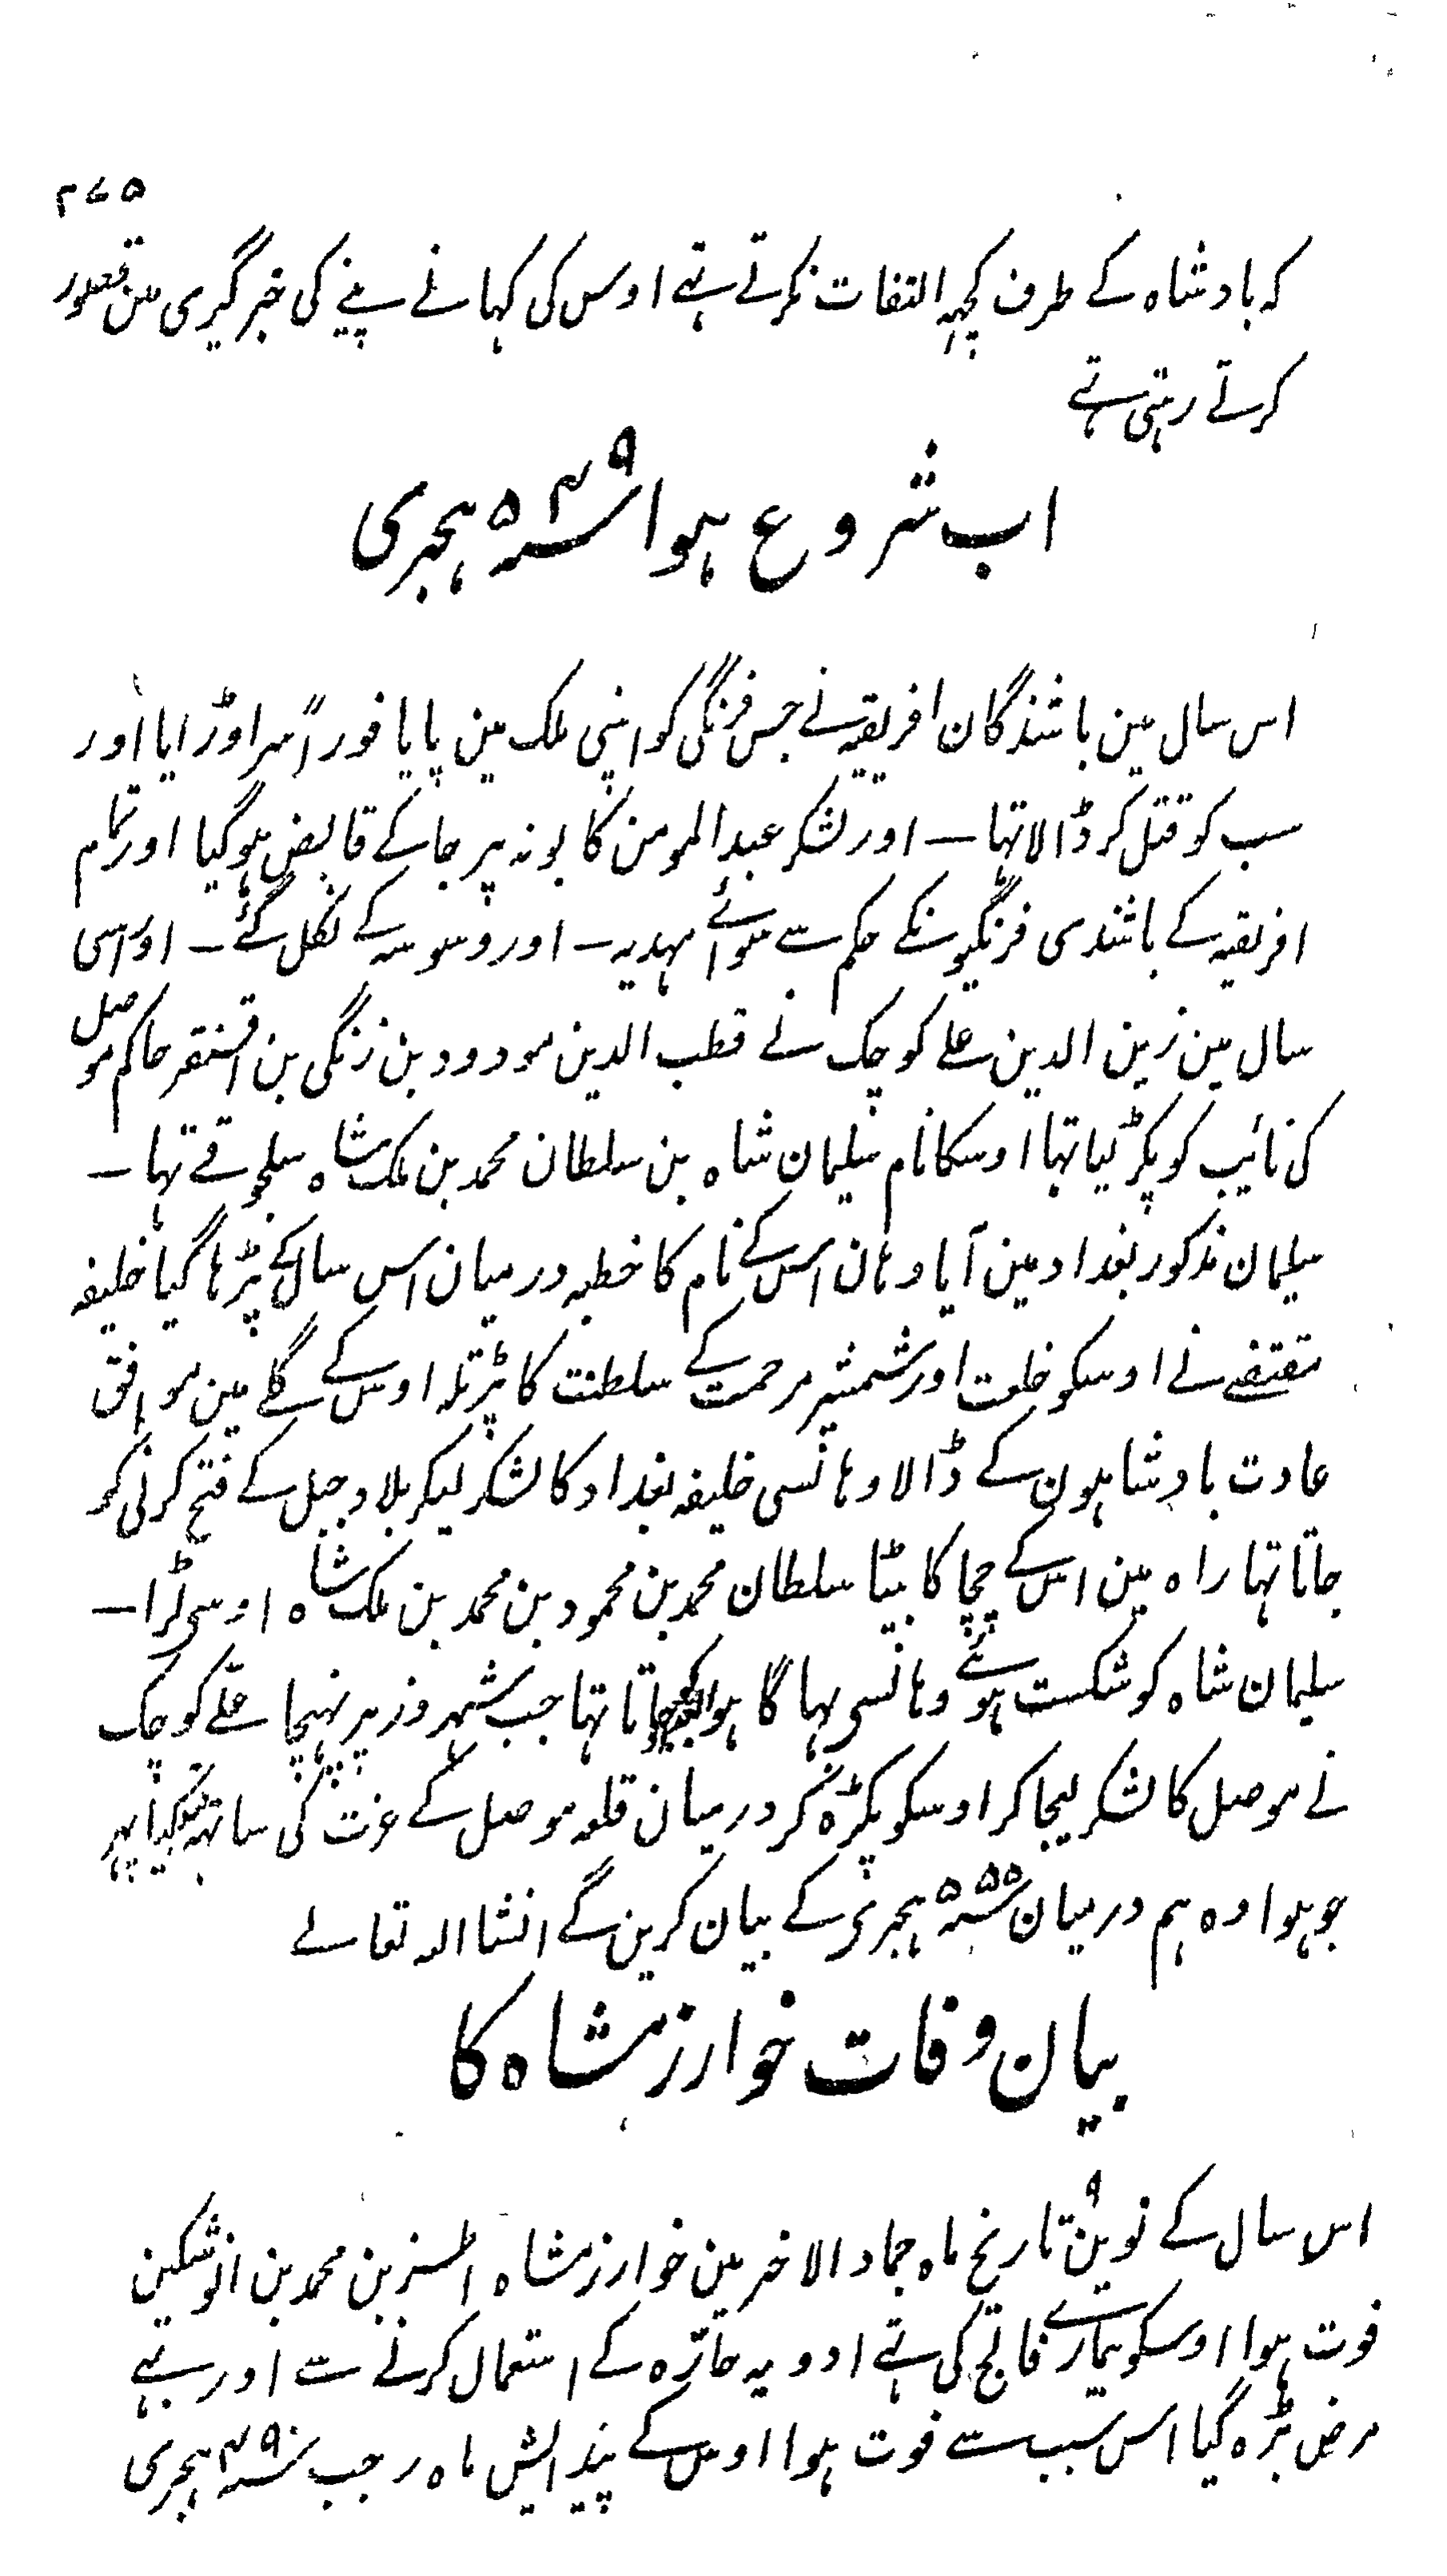 ۲۷۵
کہ بادشاہ کے طرف کچہہ التفات نکرتے تہے اوس کی کہانے پینے کی خبرگیری مین قصور
کرتے رہتی تہے
اب شروع ہوا سنہ ۵۴۹ ہجری
اس سال مین باشندگان افریقیہ نے جس فرنگی کو اپنی ملک مین پایا فوراً سر اوڑایا اور
سب کو قتل کر ڈالا تہا — اور لشکر عبدالمومن کا بونہ پر جاکے قابض ہوگیا اور تمام
افریقیہ کے باشندی فرنگیونکے حکم سے سوائے مہدیہ — اور وسوسہ کے نکل گئے — اور اسی
سال مین زین الدین علے کوچک نے قطب الدین مودود بن زنگی بن اقسنقر حاکم موصل
کی نائیب کو پکڑ لیا تہا اوسکا نام سلیمان شاہ بن سلطان محمد بن ملک شاہ سلجوقے تہا —
سلیمان مذکور بغداد مین آیا وہان اس کے نام کا خطبہ درمیان اس سال کے پڑہا گیا خلیفہ
مقتفے نے اوسکو خلعت اور شمشیر مرحمت کے سلطنت کا پڑتلہ اوس کے گلے مین موافق
عادت بادشاہون کے ڈالا وہانسی خلیفہ بغداد کا لشکر لیکر بلاد جبل کے فتح کرنی کو
جاتا تہا راہ مین اس کے چچا کا بیٹا سلطان محمد بن محمود بن محمد بن ملک شاہ اوسی لڑا —
سلیمان شاہ کو شکست ہوئے وہانسی بہاگا ہوا جاتا تہا جب شہروز پر پہنچا علے کوچک
نے موصل کا لشکر لیجا کر اوسکو پکڑہ کر درمیان قلعہ موصل کے عزت کی ساتہہ پہر
جو ہوا وہ ہم درمیان سنہ ۵۵۵ ہجری کے بیان کرین گے انشا اللہ تعالے
بیان وفات خوارزمشاہ کا
اس سال کے نوین ۹ تاریخ ماہ جماد الاخر مین خوارزمشاہ اطسز بن محمد بن انوشکین
فوت ہوا اوسکو بیمارے فالج کی تہے ادویہ حارّہ کے استعمال کرنے سے اور بہے
مرض بڑہ گیا اس سبب سے فوت ہوا اوس کے پیدایش ماہ رجب سنہ ۴۹۰ ہجری